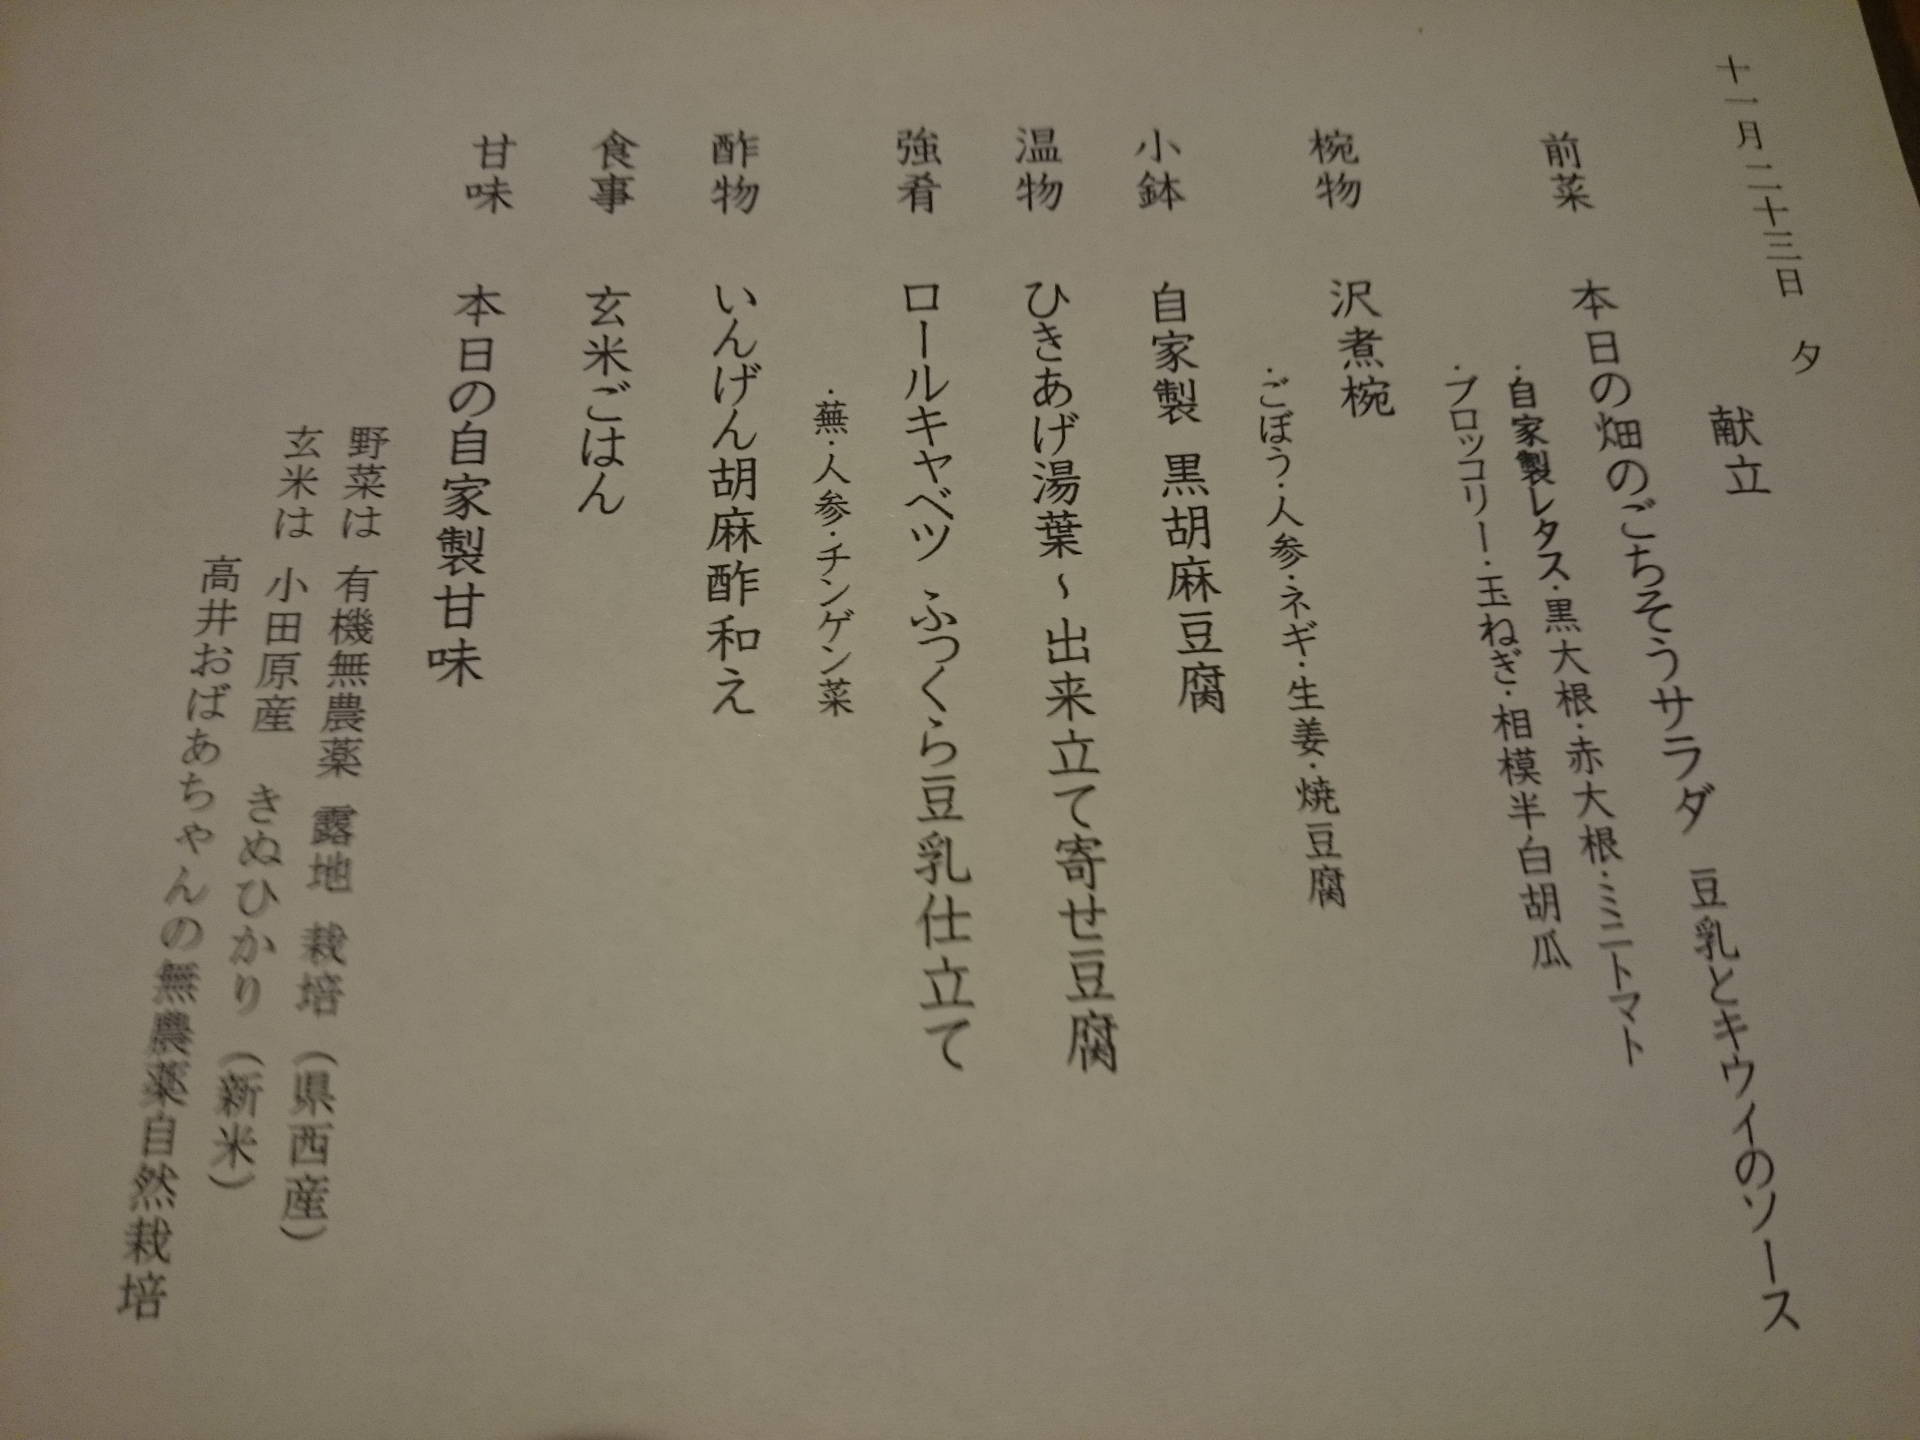 十一月二十三日 夕
献立
前菜 本日の畑のごちそうサラダ 豆乳とキウィのソース
・自家製レタス・黒大根・赤大根・ミニトマト
・ブロッコリー・玉ねぎ・相模半白胡瓜
椀物 沢煮椀
・ごぼう・人参・ネギ・生姜・焼豆腐
小鉢 自家製 黒胡麻豆腐
温物 ひきあげ湯葉~出来立て寄せ豆腐
強肴 ロールキャベツ ふっくら豆乳仕立て
・蕪・人参・チンゲン菜
酢物 いんげん胡麻酢和え
食事 玄米ごはん
甘味 本日の自家製甘味
野菜は 有機無農薬 露地 栽培 (県西産)
玄米は 小田原産 きぬひかり (新米)
高井おばあちゃんの無農薬自然栽培